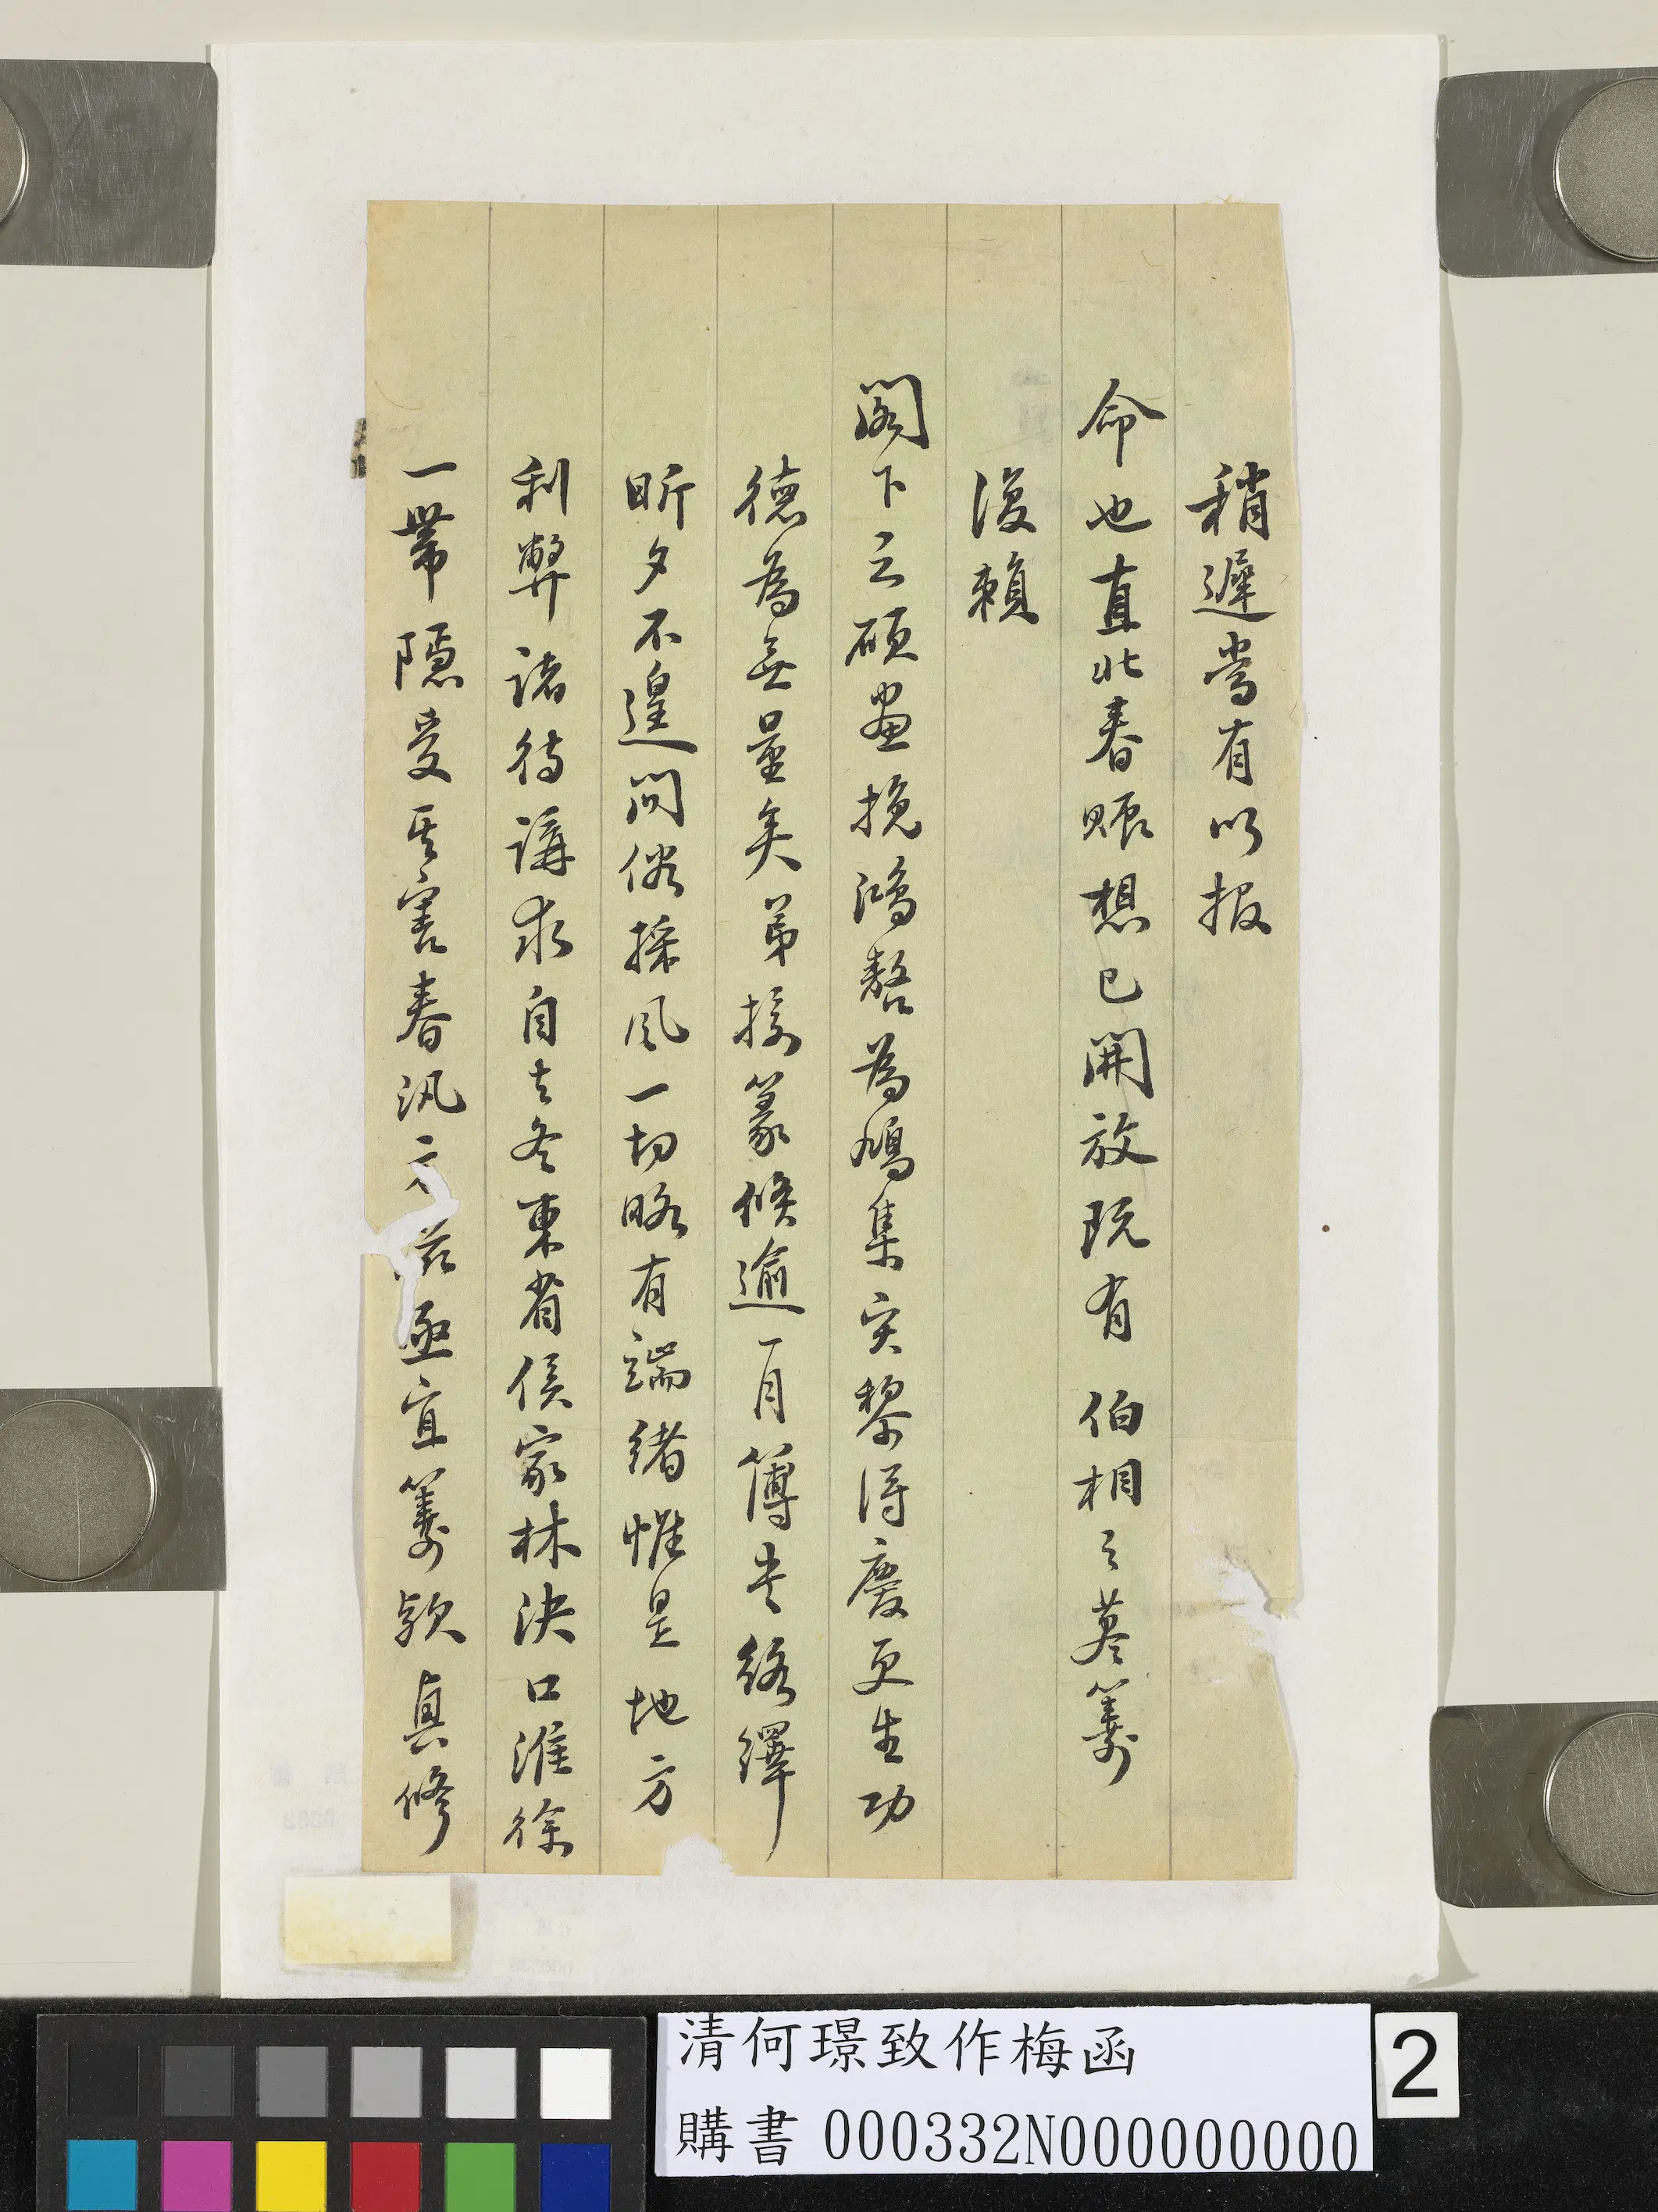 稍遲當有以報
命也直北春賑想已開放既有 伯相之藎籌
復賴
閣下之碩畫挽鴻嗸為鳩集灾黎得慶更生功
德為無量矣弟接篆倏逾一月簿書絡繹
昕夕不遑問俗採風一切略有端緒惟是地方
利弊諸待講求自去冬東省侯家林決口淮徐
一帶隱受其害春汛方 亟宜籌款興修
清何璟致作梅函
購書 000332N000000000
2